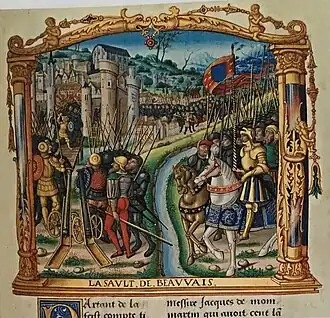 LASAULT, DE, BEAUVAIS.
Partant de la
fost compte ti
messire Jacques de mom
martin qui avoit cent la